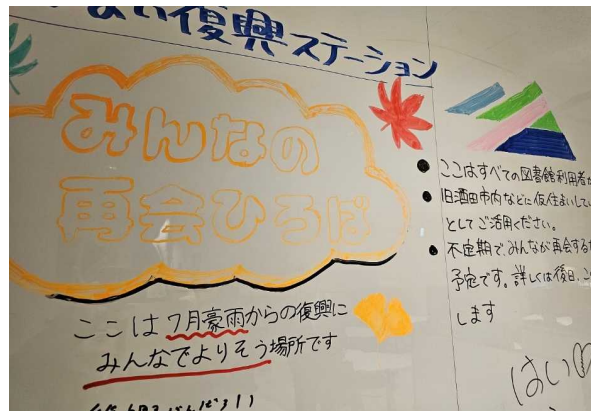 い復興ステーション
みんなの
再会ひろば
ここは7月豪雨からの復興に
みんなでよりそう場所です
ここはすべての図書館利用者
旧酒田市内などに仮住まいして
としてご活用ください。
不定期で、みんなが再会する
予定です。詳しくは後日、こ
します
はい♡